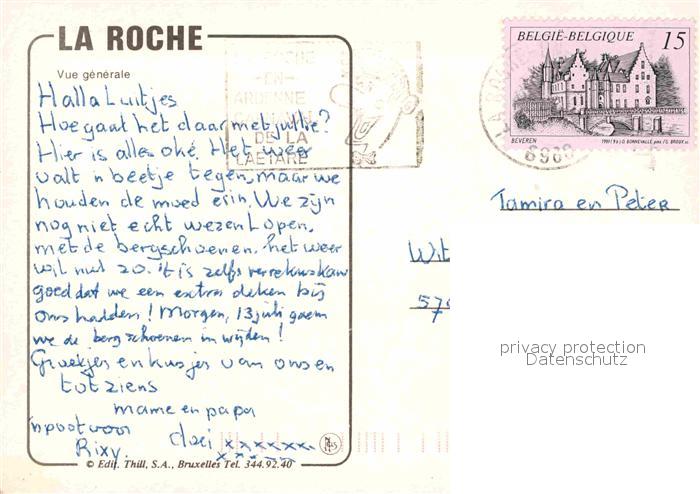 LA ROCHE
Vue générale
Halla Luitjes
Hoe gaat het daar met jullie?
Hier is alles oké. Het weer
valt 'n beetje tegen, maar we
houden de moed erin. We zijn
nog niet echt wezen Lopen.
met de bergschoenen. het weer
wil niet zo. 't is zelfs verrekus kaw
goed dat we een extra deken bij
ons hadden! Morgen, 13 juli gaan
we de bergschoenen inwijden!
Groetjes en kusjes van ons en
tot ziens
mame en papa
'n poot voor
Rixy. doei xxxxxxx
xxxxxxx
© Edit. Thill, S.A., Bruxelles Tel. 344.92.40
EN
ARDENNE
DE LA
LAETARE
6980
BELGIË-BELGIQUE 15
BEVEREN
Tamira en Peter
Wit
57
privacy protection
Datenschutz